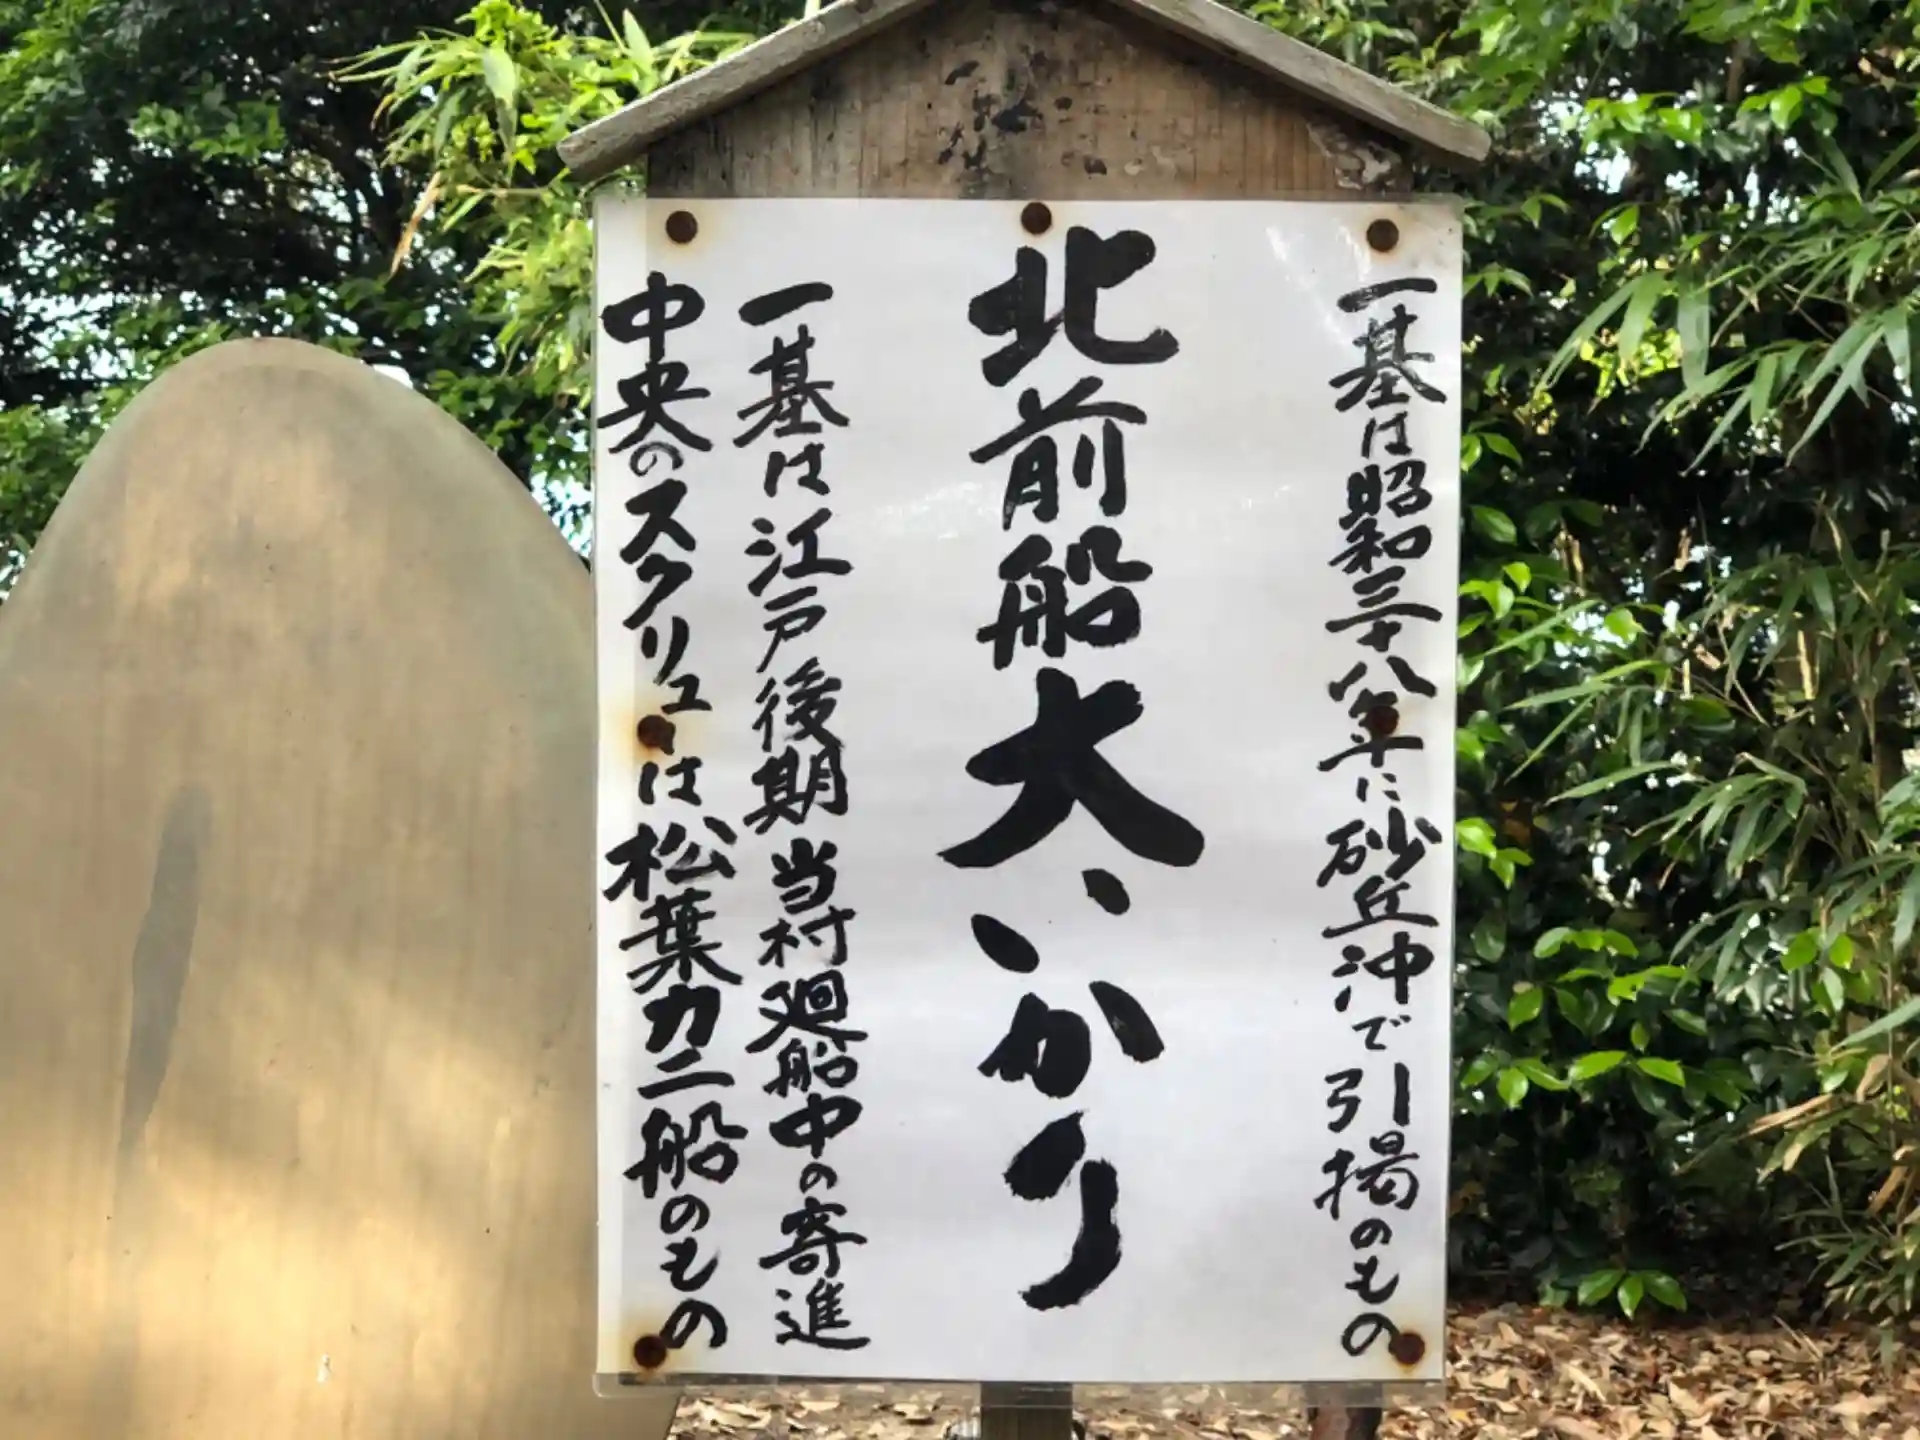 一基は昭和三十八年に砂丘沖で引揚のもの
北前船大いかり
一基は江戸後期当村廻船中の寄進
中央のスクリューは松葉カニ船のもの